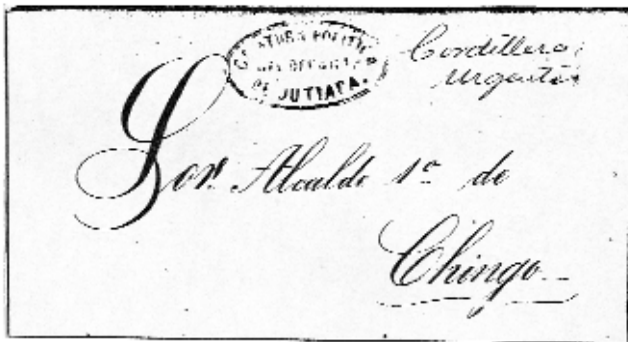 JEFATURA POLITICA
DEL DEPARTA
DE JUTIAPA.
Cordillera:
urgente
Sor. Alcalde 1º de
Chingo